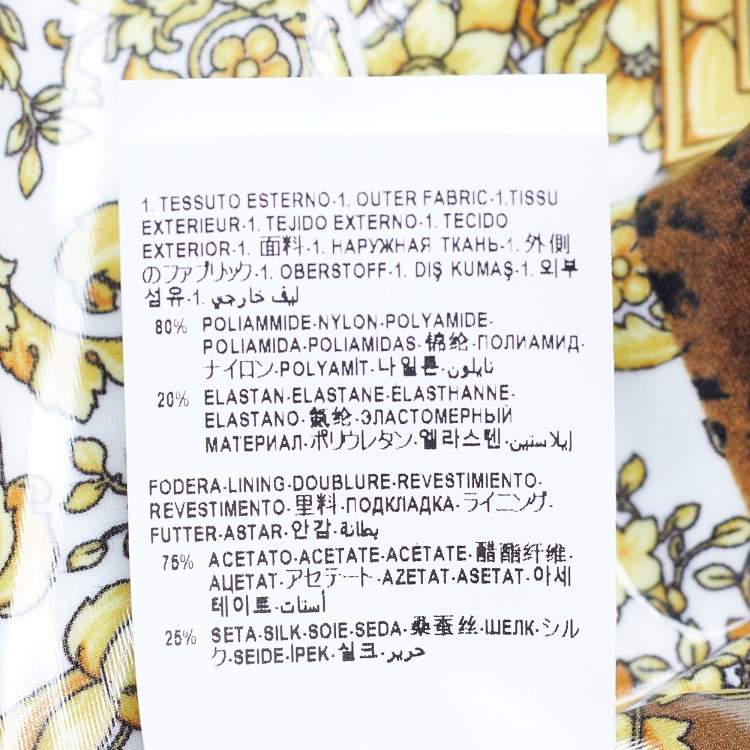 1. TESSUTO ESTERNO·1. OUTER FABRIC·1.TISSU
EXTERIEUR·1. TEJIDO EXTERNO·1. TECIDO
EXTERIOR·1. 面料·1. НАРУЖНАЯ ТКАНЬ·1. 外側
のファブリック·1. OBERSTOFF·1. DIŞ KUMAŞ·1. 외부
섬유·1. ليف خارجي
80% POLIAMMIDE·NYLON·POLYAMIDE·
POLIAMIDA·POLIAMIDAS·锦纶·ПОЛИАМИД·
ナイロン·POLYAMİT·나일론·نايلون
20% ELASTAN·ELASTANE·ELASTHANNE·
ELASTANO·氨纶·ЭЛАСТОМЕРНЫЙ
МАТЕРИАЛ·ポリウレタン·엘라스텐·إيلاستين
FODERA·LINING·DOUBLURE·REVESTIMIENTO·
REVESTIMENTO·里料·ПОДКЛАДКА·ライニング·
FUTTER·ASTAR·안감·بطانة
75% ACETATO·ACETATE·ACETATE·醋酯纤维·
АЦЕТАТ·アセテート·AZETAT·ASETAT·아세
테이트·أستات
25% SETA·SILK·SOIE·SEDA·桑蚕丝·ШЕЛК·シル
ク·SEIDE·İPEK·실크·حرير